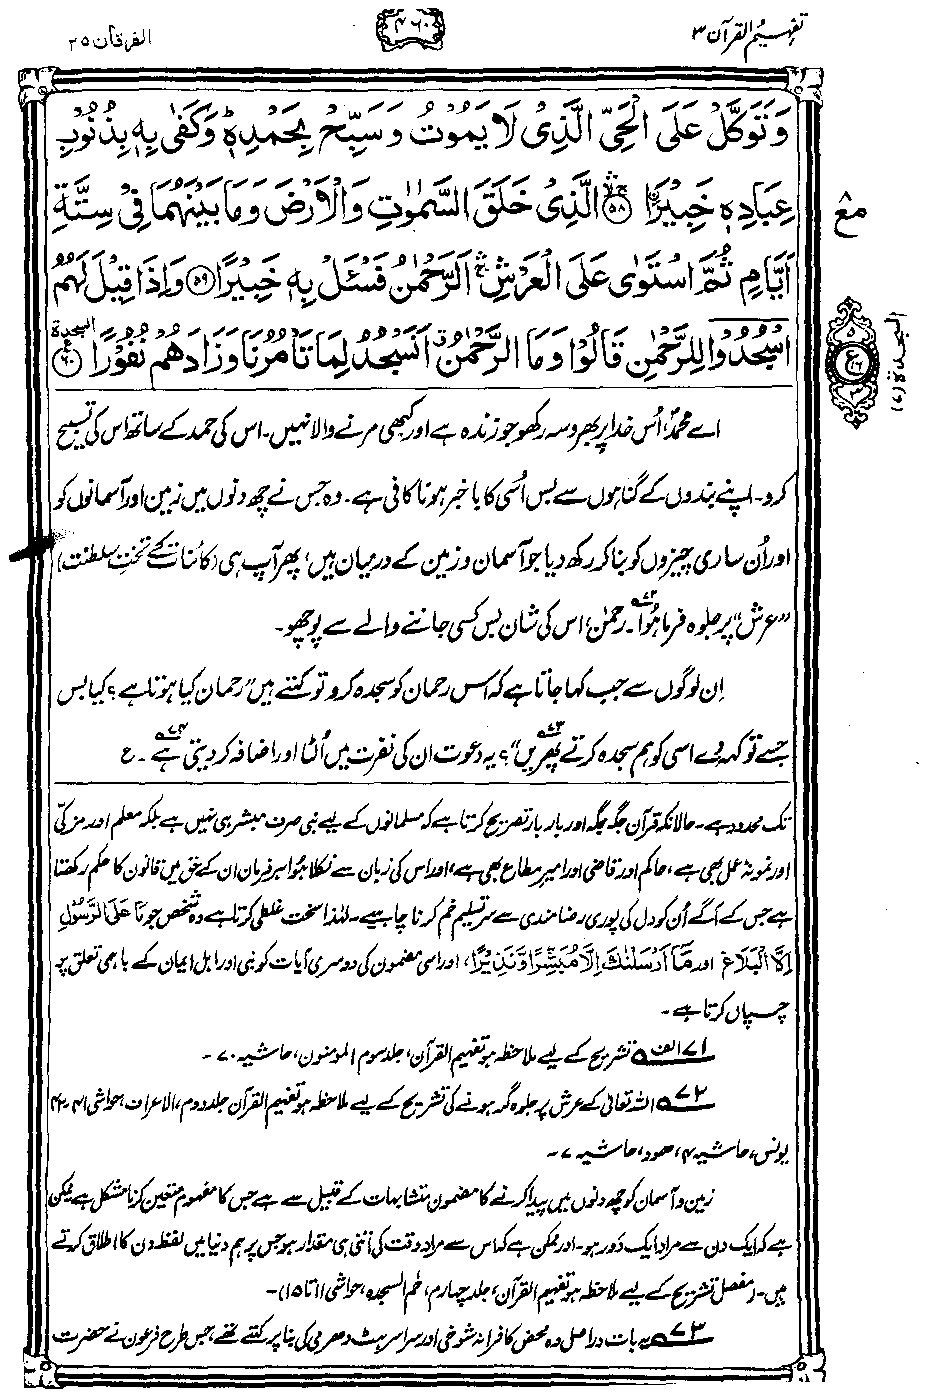 تفہیم القرآن ۳
۴۶۰
الفرقان ۲۵
وَتَوَكَّلْ عَلَى الْحَيِّ الَّذِیْ لَا یَمُوْتُ وَسَبِّحْ بِحَمْدِهٖ ؕ وَكَفٰی بِهٖ بِذُنُوْبِ
عِبَادِهٖ خَبِیْرَا ۚۛ ﴿۵۸﴾ الَّذِیْ خَلَقَ السَّمٰوٰتِ وَالْاَرْضَ وَمَا بَیْنَهُمَا فِیْ سِتَّةِ
اَیَّامٍ ثُمَّ اسْتَوٰی عَلَی الْعَرْشِ ۚۛ اَلرَّحْمٰنُ فَسْـَٔلْ بِهٖ خَبِیْرًا ﴿۵۹﴾ وَاِذَا قِیْلَ لَهُمُ
اسْجُدُوْا لِلرَّحْمٰنِ قَالُوْا وَمَا الرَّحْمٰنُ ۗ اَنَسْجُدُ لِمَا تَاْمُرُنَا وَزَادَهُمْ نُفُوْرًا ﴿۶۰﴾ السجدة
مع
۵
ع
۱۶
۳
السجدة (۷)
اے محمدؐ، اُس خدا پر بھروسہ رکھو جو زندہ ہے اور کبھی مرنے والا نہیں۔ اس کی حمد کے ساتھ اس کی تسبیح
کرو۔ اپنے بندوں کے گناہوں سے بس اُسی کا باخبر ہونا کافی ہے۔ وہ جس نے چھ دنوں میں زمین اور آسمانوں کو
اور اُن ساری چیزوں کو بنا کر رکھ دیا جو آسمان و زمین کے درمیان ہیں، پھر آپ ہی (کائنات کے تختِ سلطنت)
”عرش“ پر جلوہ فرما ہُوا۔۷۲؎ رحمٰن، اس کی شان بس کسی جاننے والے سے پوچھو۔
اِن لوگوں سے جب کہا جاتا ہے کہ اس رحمان کو سجدہ کرو تو کہتے ہیں ”رحمان کیا ہوتا ہے؟ کیا بس
جسے تو کہہ دے اسی کو ہم سجدہ کرتے پھریں“؟۷۳؎ یہ دعوت ان کی نفرت میں اُلٹا اور اضافہ کر دیتی ہے۷۴؎۔ ع
تک محدود ہے۔ حالانکہ قرآن جگہ جگہ اور بار بار تصریح کرتا ہے کہ مسلمانوں کے لیے نبی صرف مبشر ہی نہیں ہے بلکہ معلم اور مزکّی
اور نمونۂ عمل بھی ہے، حاکم اور قاضی اور امیرِ مطاع بھی ہے، اور اس کی زبان سے نکلا ہوا ہر فرمان ان کے حق میں قانون کا حکم رکھتا
ہے جس کے آگے اُن کو دل کی پوری رضامندی سے سرِ تسلیم خم کرنا چاہیے۔ لہٰذا سخت غلطی کرتا ہے وہ شخص جو مَا عَلَی الرَّسُوْلِ
اِلَّا الْبَلَاغُ اور مَآ اَرْسَلْنٰكَ اِلَّا مُبَشِّرًا وَّنَذِیْرًا، اور اسی مضمون کی دوسری آیات کو نبی اور اہل ایمان کے باہمی تعلق پر
چسپاں کرتا ہے۔
۷۱ الف؎ تشریح کے لیے ملاحظہ ہو تفہیم القرآن، جلد سوم المومنون، حاشیہ ۷۰۔
۷۲؎ اللہ تعالیٰ کے عرش پر جلوہ گر ہونے کی تشریح کے لیے ملاحظہ ہو تفہیم القرآن جلد دوم، الاعراف، حواشی ۴۱-۴۲
یونس، حاشیہ ۴، ھود، حاشیہ ۷۔
زمین و آسمان کو چھ دنوں میں پیدا کرنے کا مضمون متشابہات کے قبیل سے ہے جس کا مفہوم متعین کرنا مشکل ہے ممکن
ہے کہ ایک دن سے مراد ایک دَور ہو۔ اور ممکن ہے کہ اس سے مراد وقت کی اتنی ہی مقدار ہو جس پر ہم دنیا میں لفظ دن کا اطلاق کرتے
ہیں۔ (مفصل تشریح کے لیے ملاحظہ ہو تفہیم القرآن، جلد چہارم، حٰم السجدہ، حواشی ۱۱ تا ۱۵)۔
۷۳؎ یہ بات دراصل وہ محض کافرانہ شوخی اور سراسر ہٹ دھرمی کی بنا پر کہتے تھے، جس طرح فرعون نے حضرت